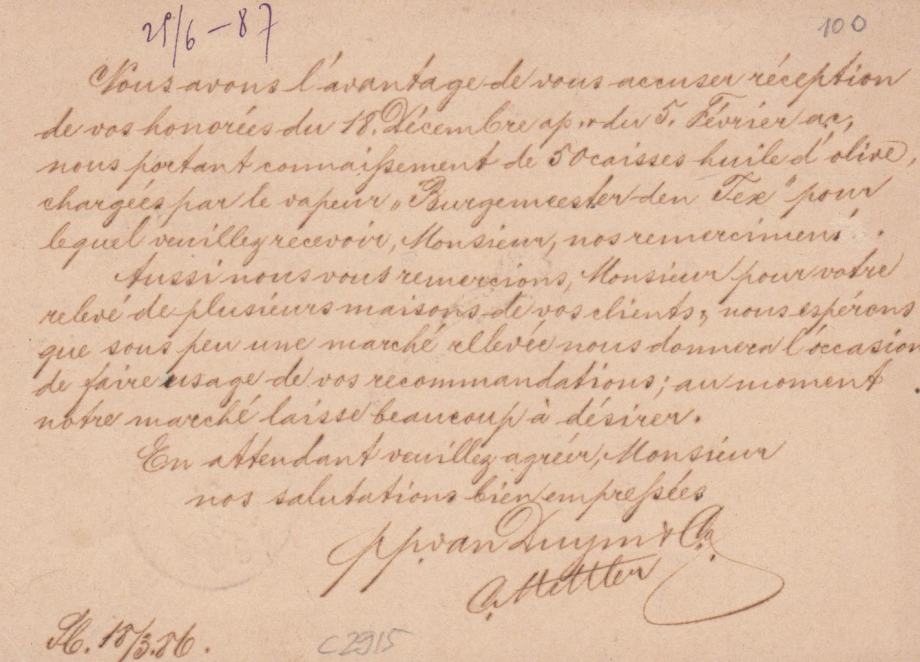 29/6-87
100
Nous avons l'avantage de vous accuser réception
de vos honorées du 18. Décembre ap. & du 5. Février ac,
nous portant connaissement de 50 caisses huile d'olive,
chargées par le vapeur „Burgemeester den Tex" pour
lequel veuillez recevoir, Monsieur, nos remerciment.
Aussi nous vous remercions, Monsieur pour votre
relevé de plusieurs maisons de vos clients, nous espérons
que sous peu une marché rellevée nous donnera l'occasion
de faire usage de vos recommandations; au moment
notre marché laisse beaucoup à désirer.
En attendant veuillez agréer, Monsieur
nos salutations bien empressées
pp. van Duym & Co.
C. Mettler
18/3.86.
C2915